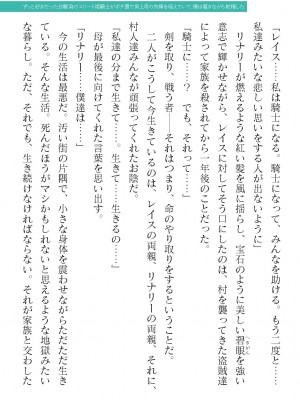 ずっと好きだった幼馴染のエリート姫騎士がオチ堕で男上司の肉棒を咥えていて、僕は覗きながら射精した
『レイス……私は騎士になる。騎士になって、みんなを助ける。もう二度と……
私達みたいな悲しい思いをする人が出ないように』
リナリーが燃えるような紅い髪を風に揺らし、宝石のように美しい碧眼を強い
意志で輝かせながら、レイスに対してそう口にしたのは、村を襲ってきた盗賊達
によって家族を殺されてから一年後のことだった。
『騎士に……？　でも、それって……』
剣を取り、戦う者――それはつまり、命のやり取りをするということだ。
二人がこうして今生きているのは、レイスの両親、リナリーの両親、それに、
村人達みんなが頑張ってくれたお陰だ。
『私達の分まで生きて……。生きて……生きるの……』
母が最後に向けてくれた言葉を思い出す。
『リナリー、僕達は……』
今の生活は最悪だ。汚い街の片隅で、小さな身体を震わせながらただただ生き
ている。そんな生活。死んだほうがマシかもしれないと思えるような地獄みたい
な暮らし。ただ、それでも、生き続けなければならない。それが家族と交わした